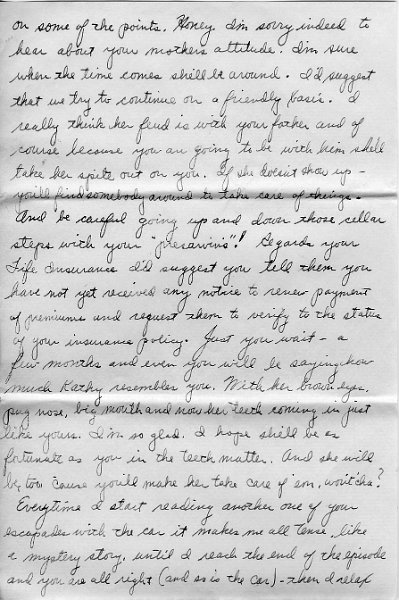 on some of the points. Honey I'm sorry indeed to
hear about your mothers attitude. I'm sure
when the time comes she'll be around. I'd suggest
that we try to continue on a friendly basis. I
really think her feud is with your father and of
course because you are going to be with him she'll
take her spite out on you. If she doesn't show up -
you'll find somebody around to take care of things.
And be careful going up and down those cellar
steps with your "presarvins"! Regards your
Life Insurance I'd suggest you tell them you
have not yet received any notice to renew payment
of premiums and request them to verify to the status
of your insurance policy. Just you wait - a
few months and even you will be saying how
much Kathy resembles you. With her brown eyes,
pug nose, big mouth and now her teeth coming in just
like yours. I'm so glad. I hope she'll be as
fortunate as you in the teeth matter. And she will
be, too 'cause you'll make her take care of em, won'tcha?
Everytime I start reading another one of your
escapades with the car it makes me all tense, like
a mystery story, until I reach the end of the episode
and you are all right (and so is the car) - then I relax